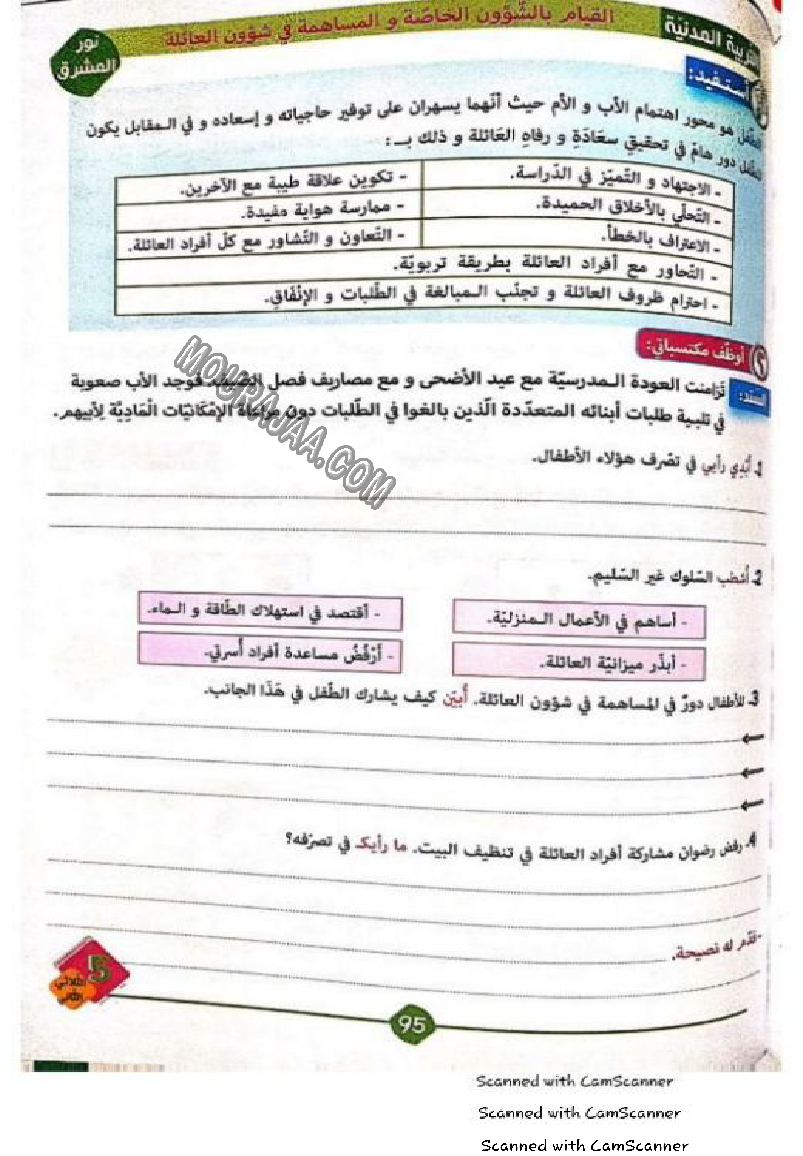 التربية المدنيّة
القيام بالشّؤون الخاصّة و المساهمة في شؤون العائلة
نور المشرق
أستفيد:
الطّفل هو محور اهتمام الأب و الأم حيث أنّهما يسهران على توفير حاجياته و إسعاده و في المقابل يكون
للطّفل دور هامّ في تحقيق سعادة و رفاه العائلة و ذلك بـ :
- الاجتهاد و التّميّز في الدّراسة.
- تكوين علاقة طيبة مع الآخرين.
- التّحلّي بالأخلاق الحميدة.
- ممارسة هواية مفيدة.
- الاعتراف بالخطأ.
- التّعاون و التّشاور مع كلّ أفراد العائلة.
- التّحاور مع أفراد العائلة بطريقة تربويّة.
- احترام ظروف العائلة و تجنّب المبالغة في الطّلبات و الإنْفَاقِ.
أوظّف مكتسباتي:
السّند: تزامنت العودة المدرسيّة مع عيد الأضحى و مع مصاريف فصل الصّيف فوجد الأب صعوبة
في تلبية طلبات أبنائه المتعدّدة الّذين بالغوا في الطّلبات دون مراعاة الإمْكَانيّات الْمَادِيَّة لِأَبِيهم.
MOURAJAA.COM
1. أُبْدِي رأيي في تصّرف هؤلاء الأطفال.
2. أشطب السّلوك غير السّليم.
- أساهم في الأعمال المنزليّة.
- أقتصد في استهلاك الطّاقة و الماء.
- أبذّر ميزانيّة العائلة.
- أَرْفُضُ مساعدة أفراد أُسرتي.
3. للأطفال دورٌ في المساهمة في شؤون العائلة. أُبيّن كيف يشارك الطّفل في هَذَا الجانب.
4. رفض رضوان مشاركة أفراد العائلة في تنظيف البيت. ما رأيك في تصرّفه؟
-نقدّم له نصيحة.
5
الثلاثي
95
Scanned with CamScanner
Scanned with CamScanner
Scanned with CamScanner